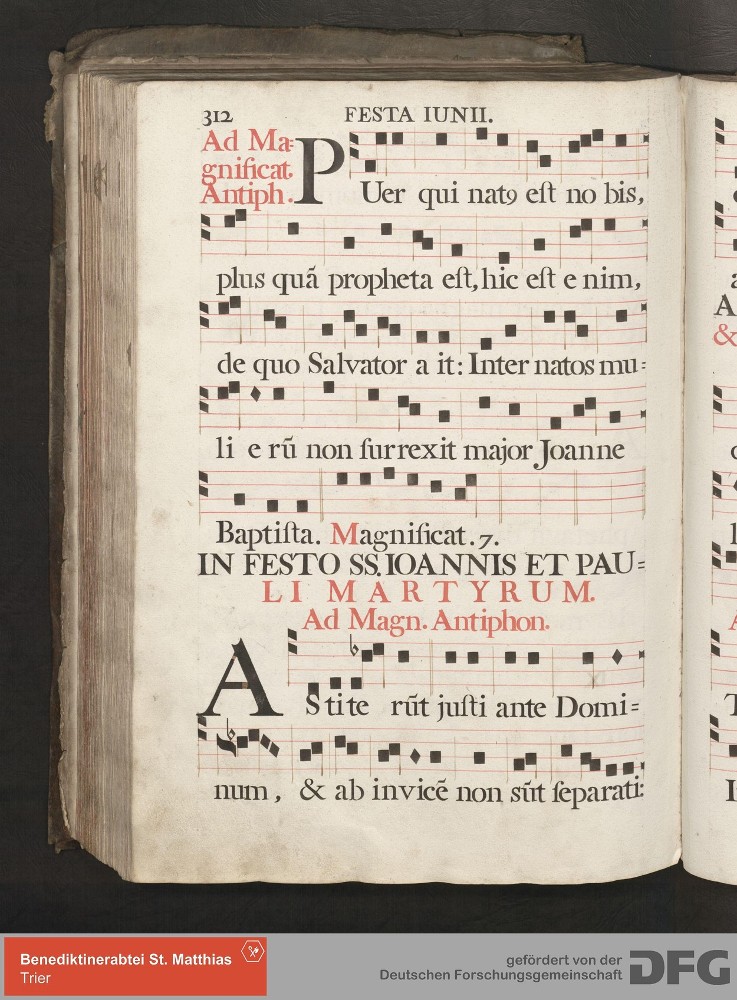 312 FESTA IUNII.
Ad Ma=
gnificat.
Antiph.
PUer qui natꝯ eſt no bis,
plus quã propheta eſt, hic eſt e nim,
de quo Salvator a it: Inter natos mu=
li e rũ non ſurrexit major Joanne
Baptiſta. Magnificat. 7.
IN FESTO SS. IOANNIS ET PAU=
LI MARTYRUM.
Ad Magn. Antiphon.
AStite rũt juſti ante Domi=
num, & ab invicẽ non sũt ſeparati:
Benediktinerabtei St. Matthias
Trier
gefördert von der
Deutschen Forschungsgemeinschaft
DFG